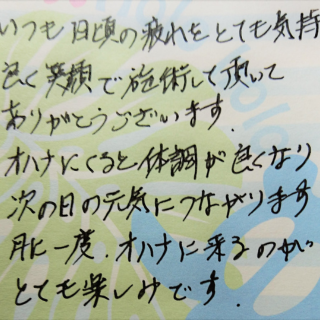 いつも日頃の疲れをとても気持
良く笑顔で施術して頂いて
ありがとうございます.
オハナにくると体調が良くなり
次の日の元気につながります
月に一度.オハナに来るのが
とても楽しみです.